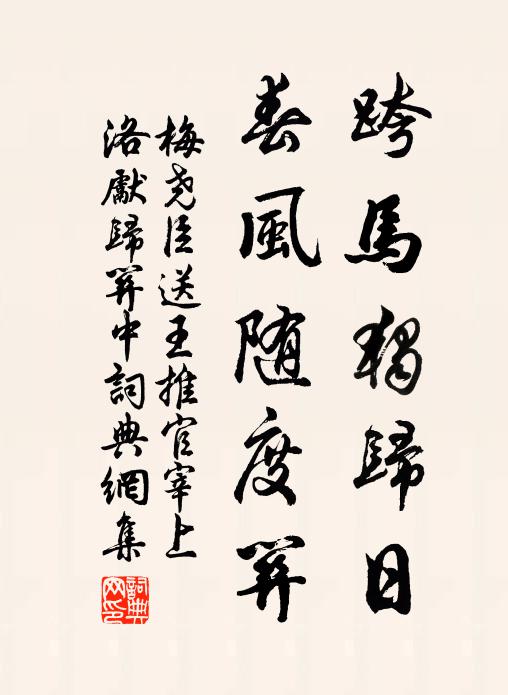 跨馬獨歸日
春風随度関
梅尧臣送王推官宰上
洛獻歸関中詞典網集
詞典網印